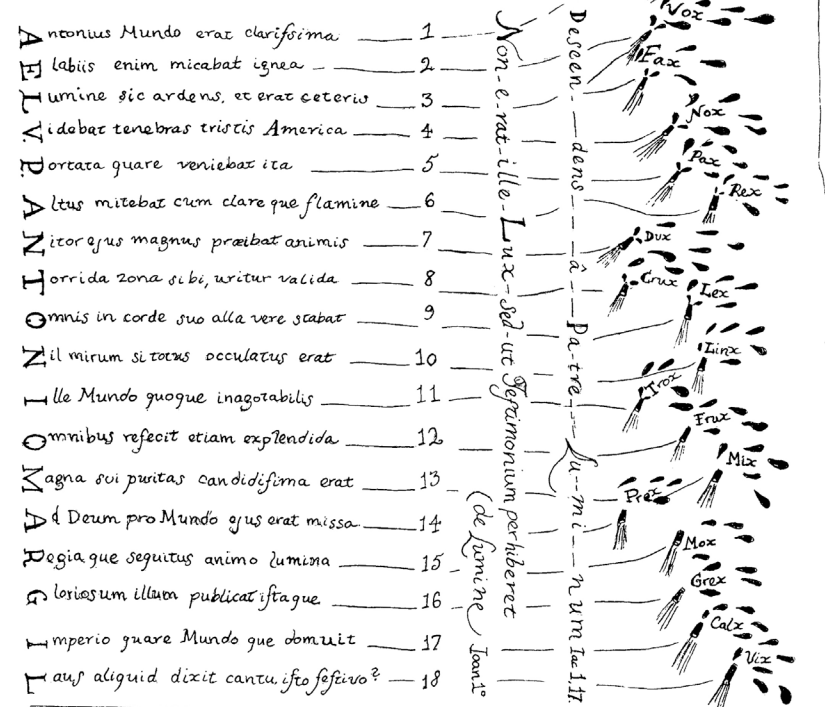 Antonius Mundo erat clarissima 1
E labiis enim micabat ignea 2
Lumine sic ardens, et erat ceteris 3
Vidabat tenebras tristis America 4
Portata quare veniebat ita 5
Altus mitebat cum clare que flamine 6
Nitor ejus magnus præibat animis 7
Torrida zona sibi, uritur valida 8
Omnis in corde suo alla vere stabat 9
Nil mirum si totus occulatus erat 10
Ille Mundo quoque inagotabilis 11
Omnibus refecit etiam explendida 12
Magna sui puritas candidifima erat 13
Ad Deum pro Mundo ejus erat missa 14
Regia que seguitus animo lumina 15
Gloriosum illum publicat istaque 16
Imperio quare Mundo que domuit 17
Laus aliquid dixit cantu, isto festivo? 18
Non-e-rat-ille-Lux-sed-ut Testimonium perhiberet
(de Lumine Ioan 1º
Descen--dens---â--Pa-tre--Lu--mi--num Iac 1,17.
Vox
Fax
Nox
Pax
Rex
Dux
Crux
Lex
Linx
Trox
Frux
Mix
Prex
Mox
Grex
Calx
Vix